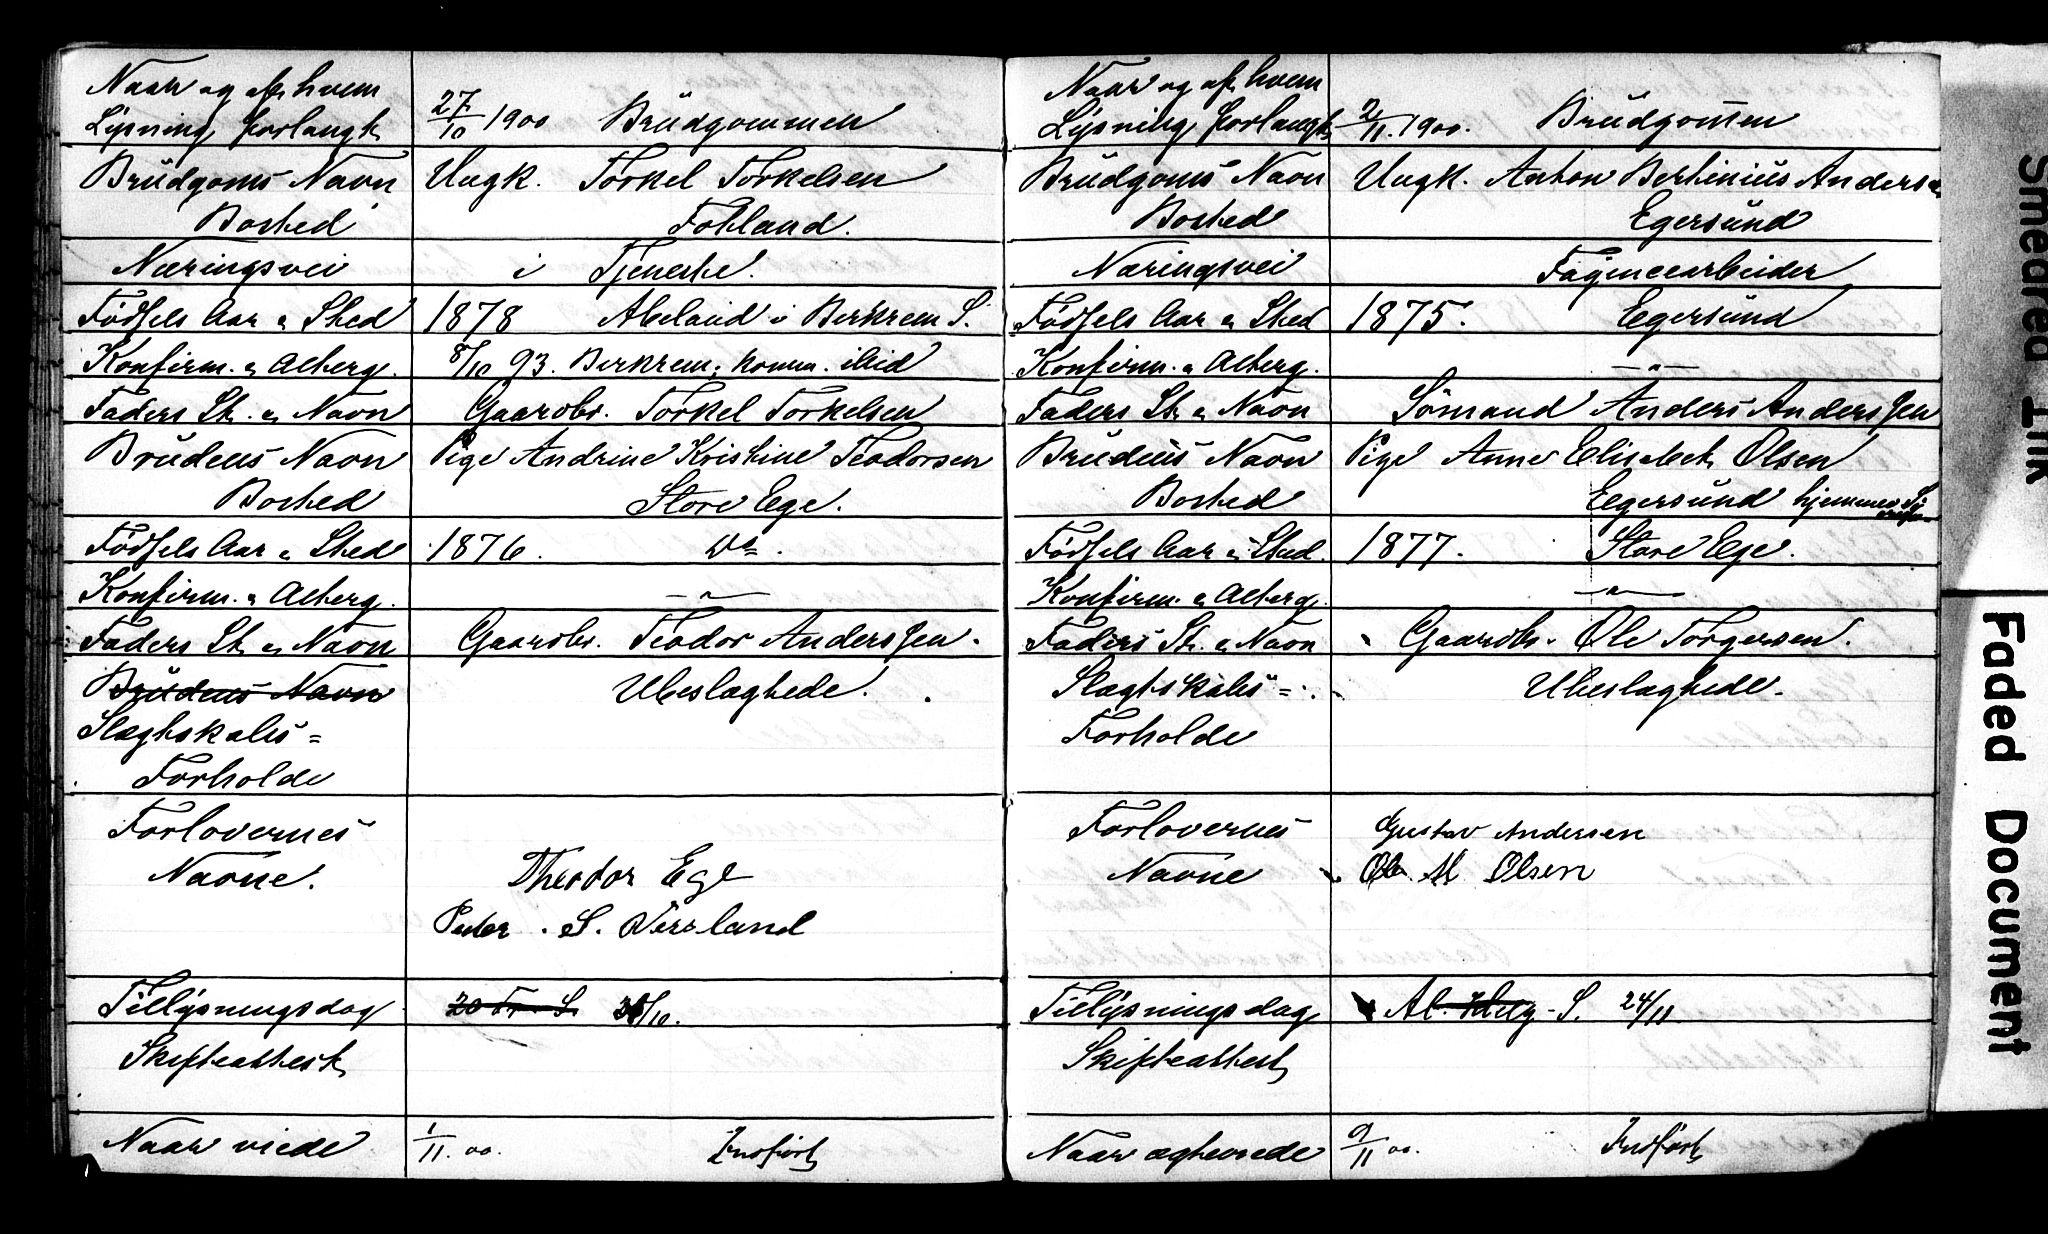 Naar og af hvem
Lysning forlangt 27/10 1900 Brudgommen
Brudgoms Navn Ungk. Torkel Torkelsen
Bosted Fotland.
Næringsvei i Tjeneste.
Fødsels Aar & Sted 1878 Abeland i Berkrem S.
Konfirm. & Alterg. 8/10 93. Berkrem; komm. ibid
Faders St. & Navn Gaardbr. Torkel Torkelsen
Brudens Navn Pige Andrine Kristine Teodorsen
Bosted Store Ege.
Fødsels Aar & Sted 1876. Do.
Konfirm. & Alterg. —"—
Faders St. & Navn Gaardbr. Teodor Anderssen.
Brudens Navn Ubeslægtede.
Slægtskabs=
Forholde
Forlovernes
Navne. Theodor Ege
Peder S. Versland
Tillysningsdag 20 Tr S. 30/10.
Skifteattest
Naar viede 1/11. 00. Indført
Naar og af hvem
Lysning forlangt 2/11. 1900. Brudgom̄en
Brudgoms Navn Ungk. Anton Bertinius Andersen
Bosted Egersund
Næringsvei Fayencearbeider
Fødsels Aar & Sted 1875. Egersund
Konfirm. & Alterg. —"—
Faders St & Navn Sømand Anders Anderssen
Brudens Navn Pige Anne Elisabet Olsen
Bosted Egersund hjemme
Fødsels Aar & Sted. 1877. Store Ege.
Konfirm. & Alterg. —"—
Faders St. & Navn Gaardbr. Ole Torgersen.
Slægtskabs= Ubeslægtede.
Forholde
Forlovernes Gustav Andersen
Navne Ole M Olsen
Tillysningsdag Al. Helg. S. 24/11.
Skifteattest
Naar ægteviede 9/11 00. Indført
Smeared Ink
Faded Document